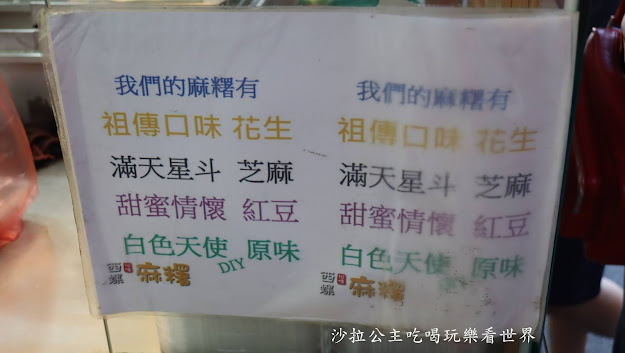 我們的麻糬有
祖傳口味 花生
滿天星斗 芝麻
甜蜜情懷 紅豆
白色天使 原味
DIY
西螺
麻糬
我們的麻糬有
祖傳口味 花生
滿天星斗 芝麻
甜蜜情懷 紅豆
白色天使 原味
西螺
麻糬
沙拉公主吃喝玩樂看世界